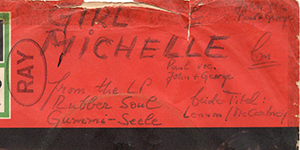 GIRL
MICHELLE
RAY
Paul
John & George
from the LP
Rubber Soul
Gummi-Seele
beide Titel:
Lennon/McCartney